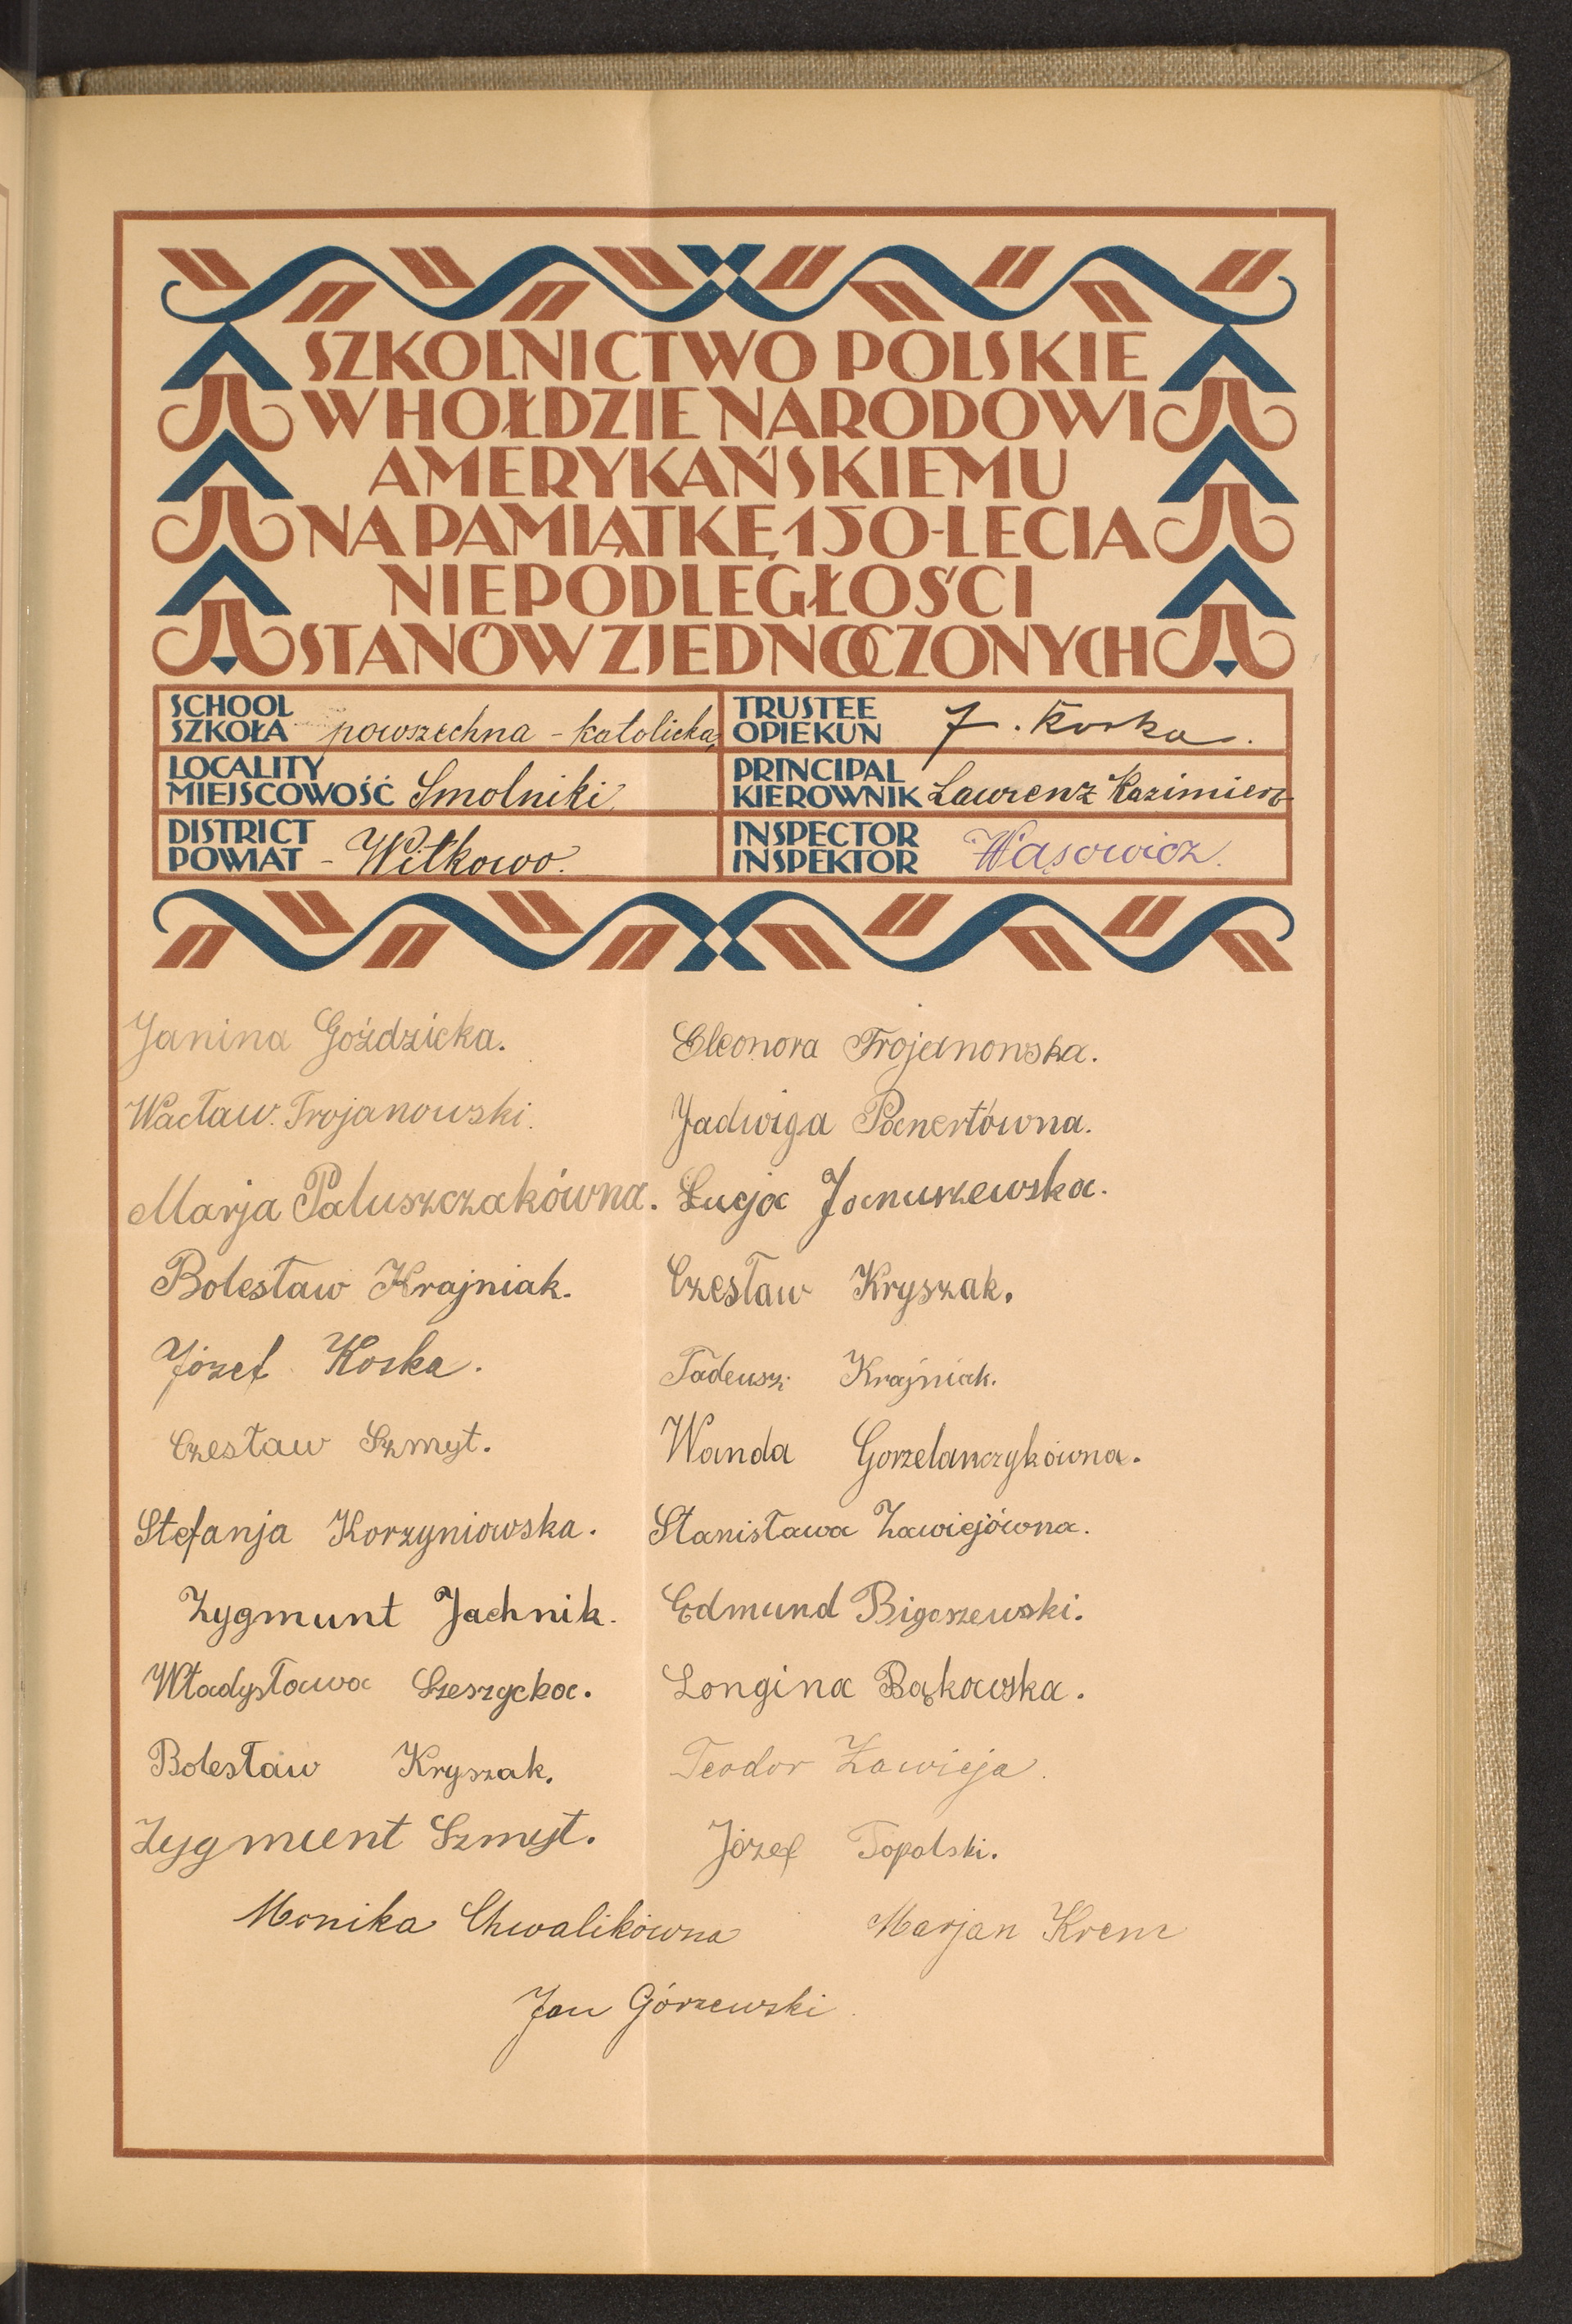 SZKOLNICTWO POLSKIE
W HOŁDZIE NARODOWI
AMERYKAŃSKIEMU
NA PAMIĄTKĘ 150-LECIA
NIEPODLEGŁOŚCI
STANÓW ZJEDNOCZONYCH
SCHOOL
SZKOŁA powszechna - katolicka
TRUSTEE
OPIEKUN J. Koska.
LOCALITY
MIEJSCOWOŚĆ Smolniki
PRINCIPAL
KIEROWNIK Lawrenz Kazimierz
DISTRICT
POWIAT - Witkowo.
INSPECTOR
INSPEKTOR Wąsowicz.
Janina Goździcka.
Eleonora Trojanowska.
Wacław Trojanowski.
Jadwiga Panertówna.
Marja Paluszczakówna.
Łucja Januszewska.
Bolesław Krajniak.
Czesław Kryszak.
Józef Koska.
Tadeusz Krajniak.
Czesław Szmyt.
Wanda Gorzelanczykówna.
Stefanja Korzyniowska.
Stanisława Zawiejówna.
Zygmunt Jachnik.
Edmund Bigoszewski.
Władysława Szeszycka.
Longina Bąkowska.
Bolesław Kryszak.
Teodor Zawieja.
Zygmunt Szmyt.
Józef Topolski.
Monika Chwalikówna
Marjan Krenz
Jan Górzewski.